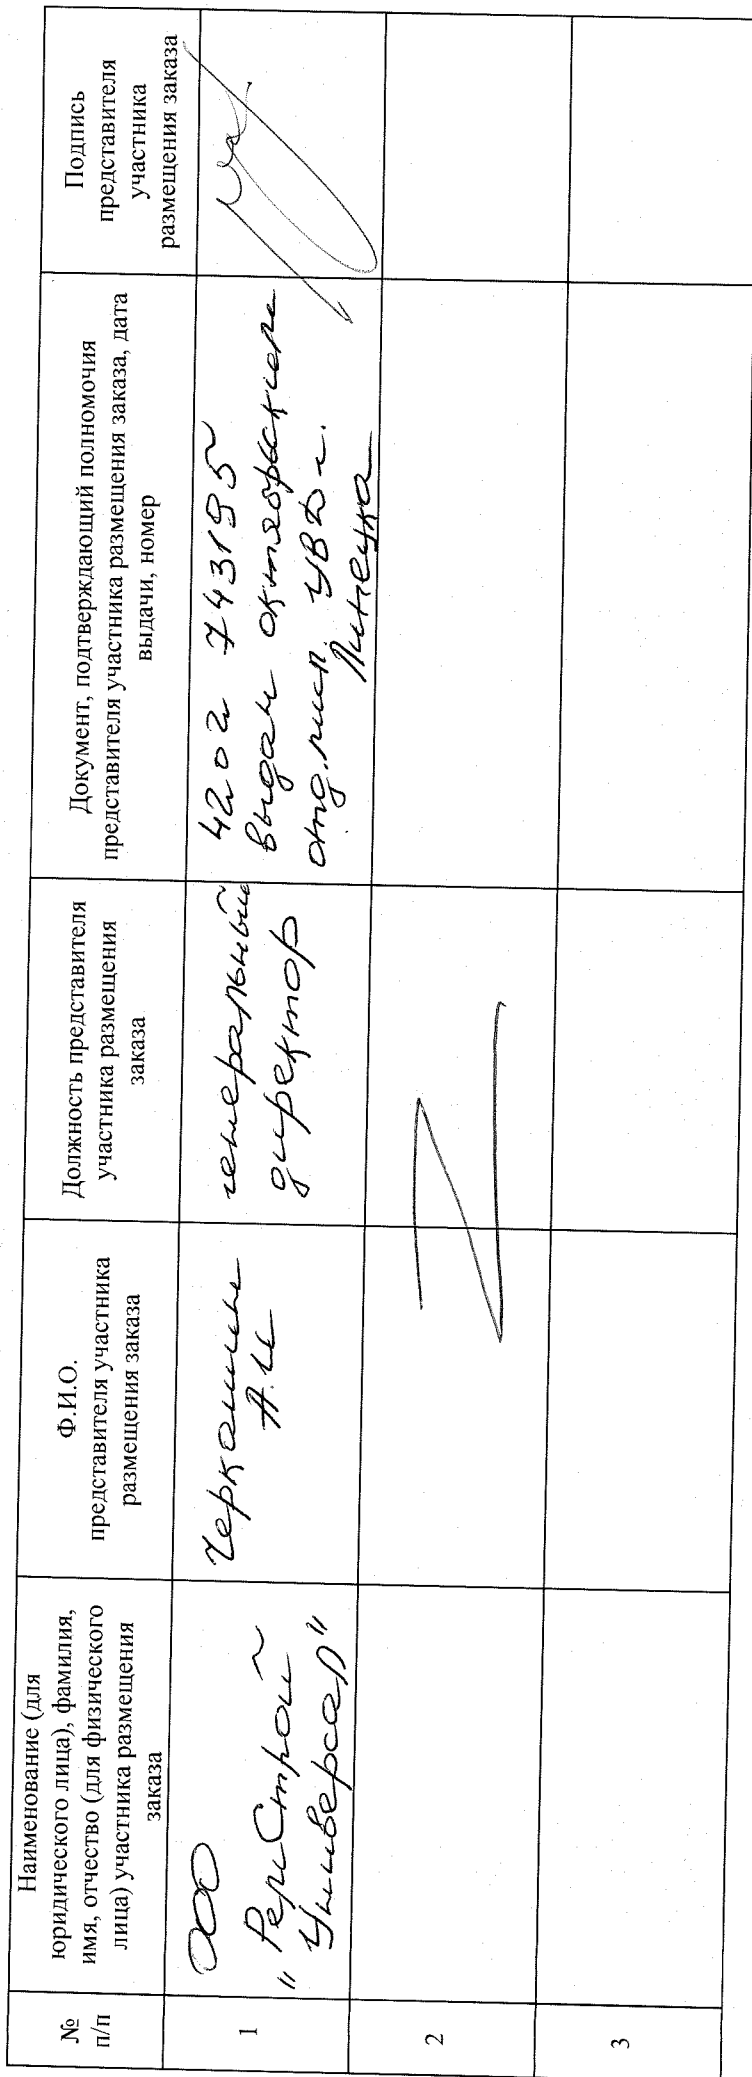 №
п/п
Наименование (для
юридического лица), фамилия,
имя, отчество (для физического
лица) участника размещения
заказа
Ф.И.О.
представителя участника
размещения заказа
Должность представителя
участника размещения
заказа
Документ, подтверждающий полномочия
представителя участника размещения заказа, дата
выдачи, номер
Подпись
представителя
участника
размещения заказа
1
ООО
"РемСтрой
Универсал"
Черкашин
А.И
генеральный
директор
4202 743195
выдан октябрьским
отд.мил. УВД г.
Липецка
2
3